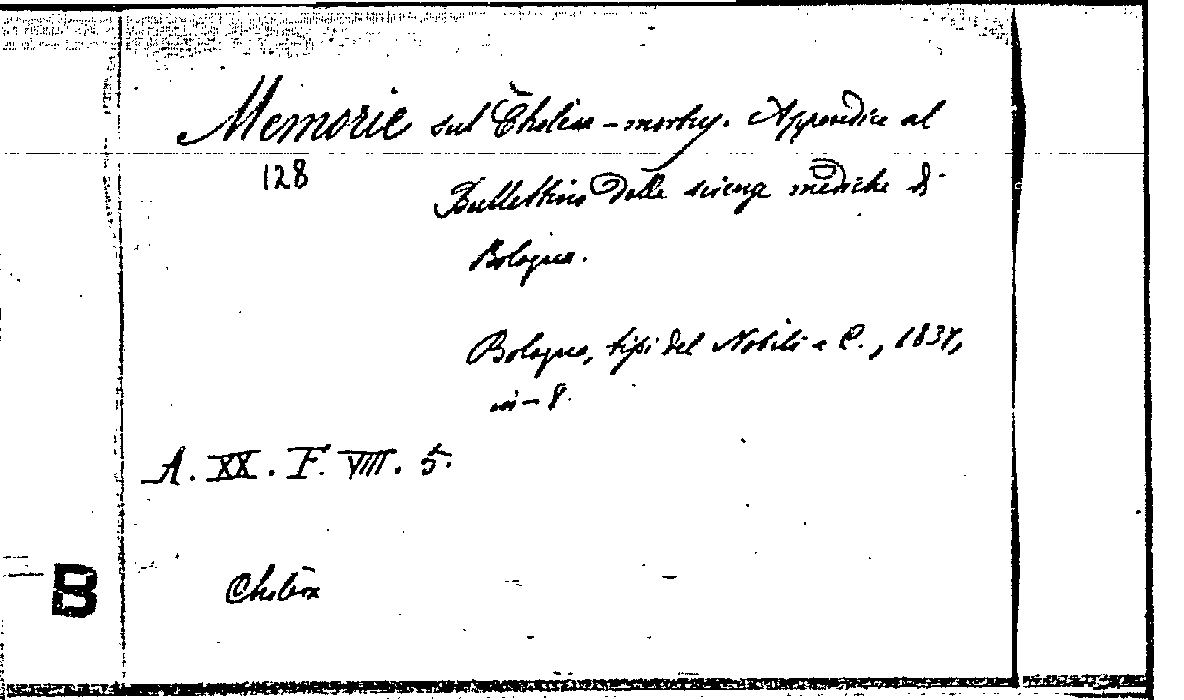 Memorie sul Cholera-morbus. Appendice al
128
Bullettino delle scienze mediche di
Bologna.
Bologna, tipi del Nobili e C., 1837,
in-8.
A. XX. F. VIII. 5.
B
Cholera